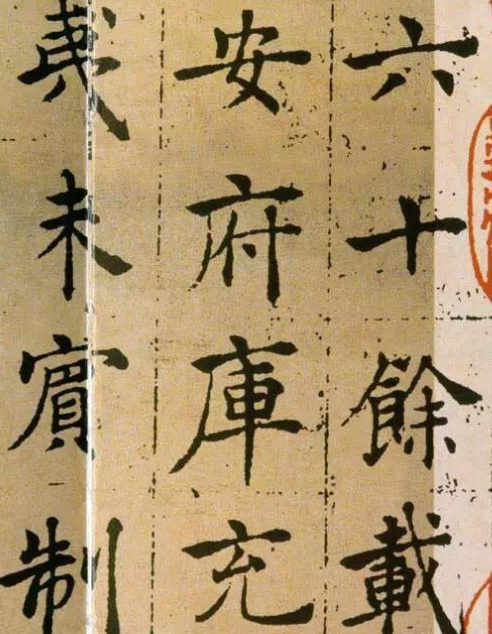 六十餘載
安府庫充
夷未賓制